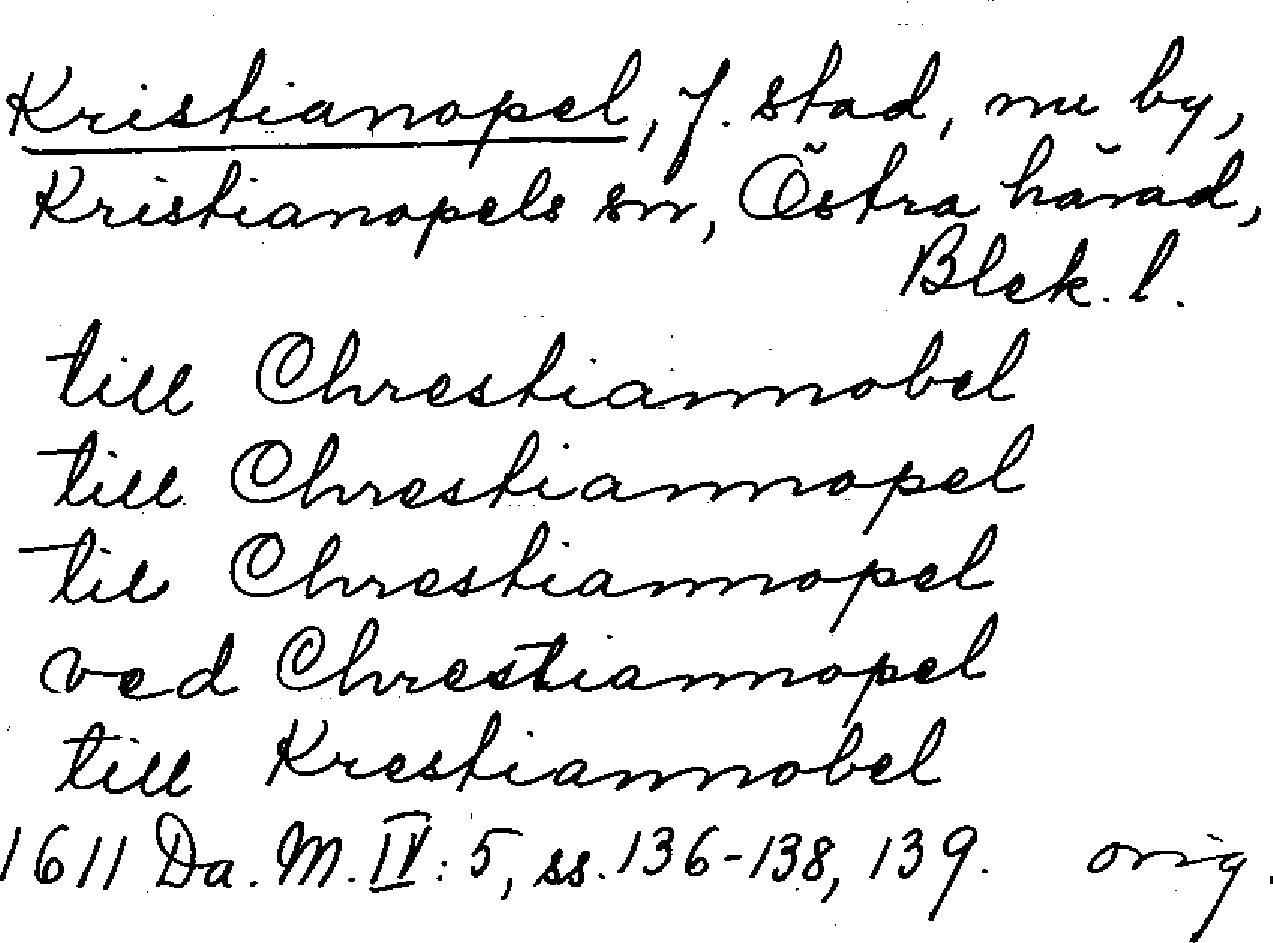 Kristianopel, f. stad, nu by,
Kristianopels sn, Östra härad,
Blek. l.
till Chrestiannobel
till Chrestiannopel
til Chrestiannopel
ved Chrestiannopel
till Krestiannobel
1611 Da. M. IV: 5, ss. 136-138, 139. orig.